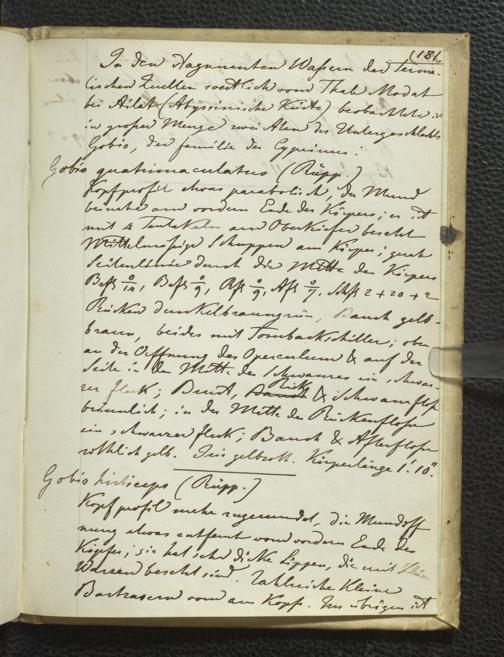 (181
In den stagnirenden Wassern der
lischen Quellen westlich vom Thale Modat
bei Ailat (Abyssinische Küste) beobachtete
in großer Menge zwei Arten des Untergeschlechts
Gobio, der familie der Cyprinus:
Gobio quatrimaculatus (Rüpp.)
Kopfprofil etwas parabolisch, der Mund
beinahe am vordern Ende des Körpers; er ist
mit 4 Tentakeln am Oberkiefer besetzt
Mittelmäßige Schuppen am Körper; gerade
Seitenlinie durch die Mitte des Körpers
2 + 20 + 2
Rücken dunkelbraungrün, Bauch gelb-
braun, beides mit schiller; oben
an der Öffnung des Operculum & auf der
Seite in der Mitte des Schwanzes ein schwar-
zer fleck; Brust, Rück & Schwanzflosse
bräunlich; in der Mitte der Rückenflosse
ein schwarzer fleck; Bauch & Afterflosse
rothlichgelb. Iris gelbroth. Körperlänge 1' 10".
Gobio hirticeps (Rüpp.)
Kopfprofil mehr zugerundet, die Mundöff
nung etwas entfernt vom vordern Ende des
Kopfes; sie hat sehr dicke Lippen, die mit kleinen
Warzen besetzt sind. Zahlreiche kleine
Bartfasern vorn am Kopf. Im übrigen ist